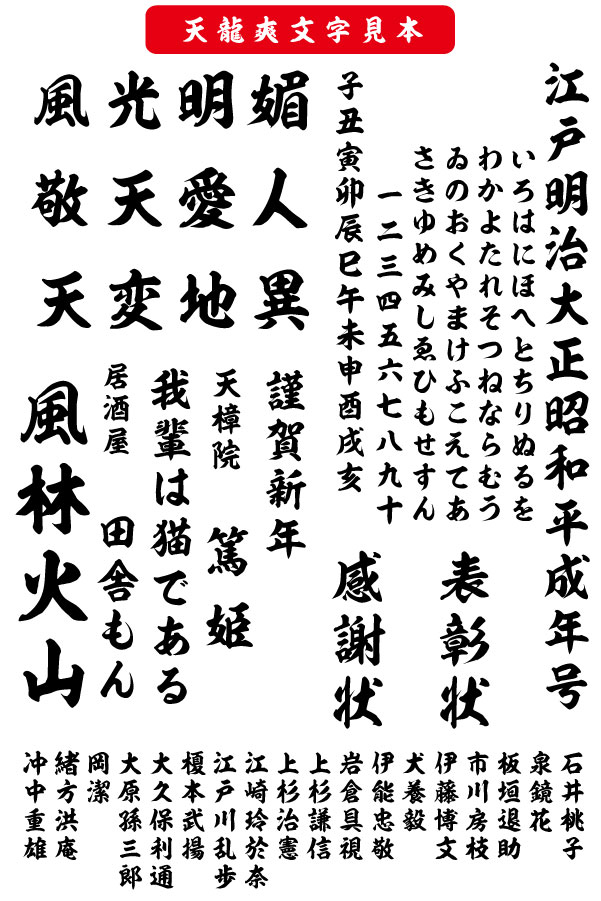 天龍爽文字見本
江戸明治大正昭和平成年号
いろはにほへとちりぬるを
わかよたれそつねならむう
ゐのおくやまけふこえてあ
さきゆめみしゑひもせすん
一二三四五六七八九十
子丑寅卯辰巳午未申酉戌亥
表彰状
感謝状
風光明媚
敬天愛人
天変地異
謹賀新年
天樟院 篤姫
我輩は猫である
居酒屋 田舎もん
風林火山
石井桃子
泉鏡花
板垣退助
市川房枝
伊藤博文
犬養毅
伊能忠敬
岩倉具視
上杉謙信
上杉治憲
江崎玲於奈
江戸川乱歩
榎本武揚
大久保利通
大原孫三郎
岡潔
緒方洪庵
冲中重雄